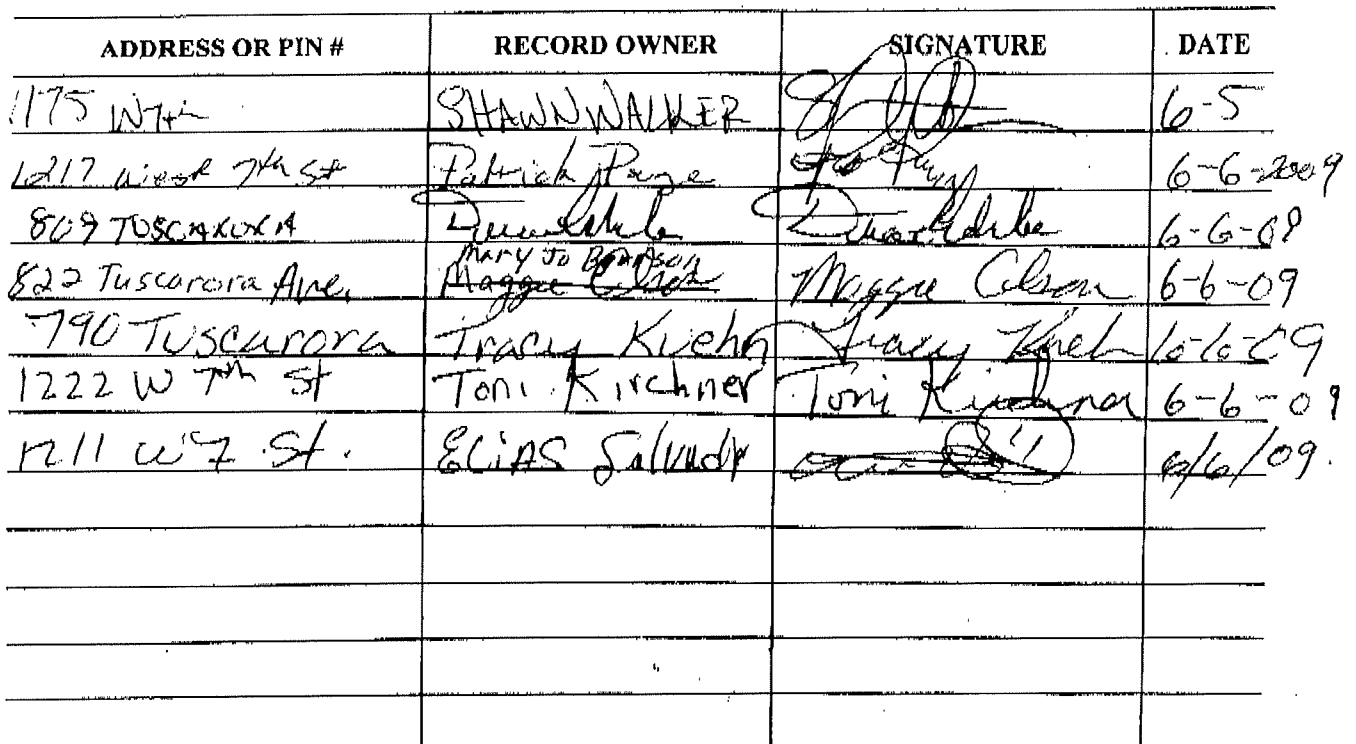 ADDRESS OR PIN # RECORD OWNER SIGNATURE DATE
1175 W 7th SHAWN WALKER 6-5
1217 West 7th St Patrick 6-6-2009
809 TUSCARORA 6-6-09
Mary Jo
822 Tuscarora Ave. Maggie Olson Maggie Olson 6-6-09
790 Tuscarora Tracy Kuehn Tracy Kuehn 6-6-09
1222 W 7th St Toni Kirchner Toni Kirchner 6-6-09
1211 W 7 St. ELIAS 6/6/09.